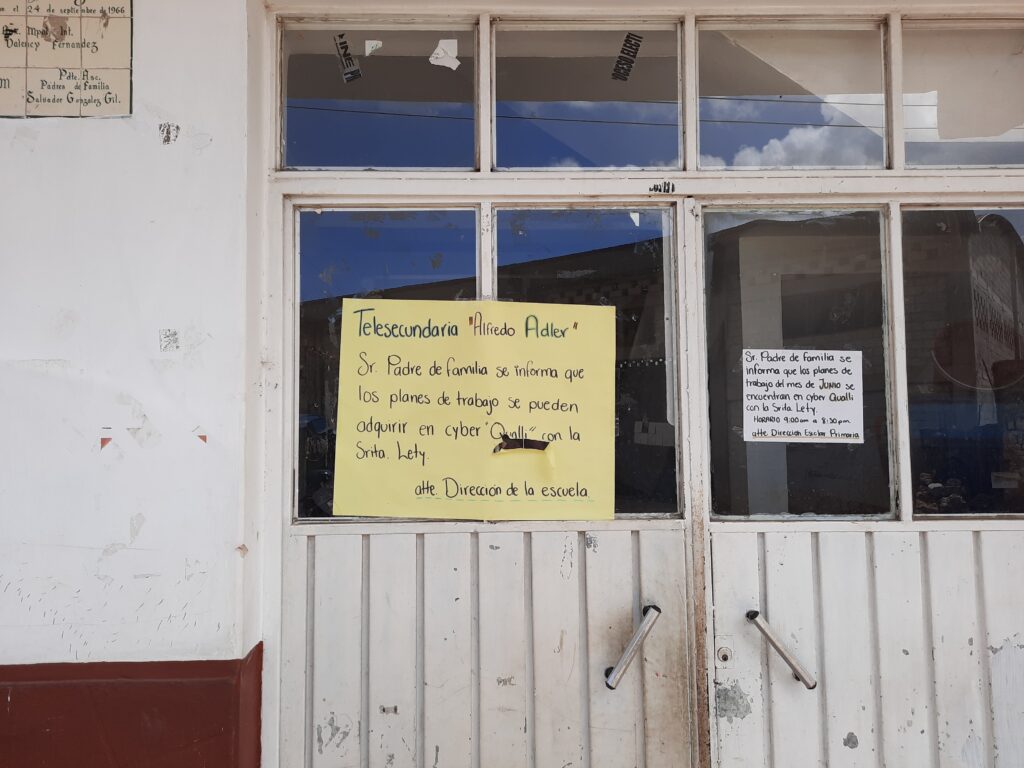 el 24 de septiembre de 1966
Mpal. Int.
Valency Fernandez
m
Pdte. Asc.
Padres de Familia
Salvador Gonzalez Gil.
INE
Telesecundaria "Alfredo Adler"
Sr. Padre de familia se informa que
los planes de trabajo se pueden
adquirir en cyber "Qualli" con la
Srita. Lety.
atte. Dirección de la escuela
Sr. Padre de familia se
informa que los planes de
trabajo del mes de JUNIO se
encuentran en cyber Qualli
con la Srita Lety.
HORARIO 9:00 am a 8:30 pm.
atte Dirección Escolar Primaria